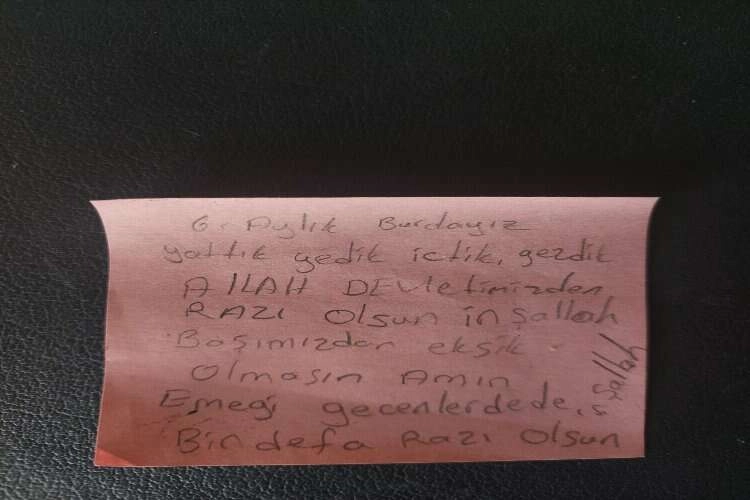 6. Aylık Burdayız
yattık yedik içtik, gezdik
AllAH DEVletimizden
RAZI Olsun inşallah
Başımızdan eksik
Olmasın Amin
Emeği geçenlerdede,
Bin defa RAZI Olsun
inşallah